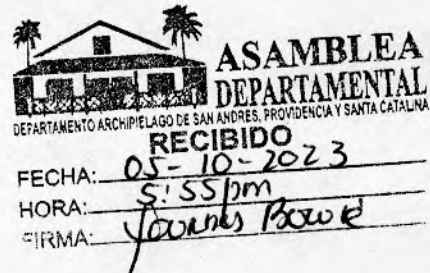 ASAMBLEA
DEPARTAMENTAL
DEPARTAMENTO ARCHIPIELAGO DE SAN ANDRES, PROVIDENCIA Y SANTA CATALINA
RECIBIDO
FECHA: 05-10-2023
HORA: 5:55pm
FIRMA: